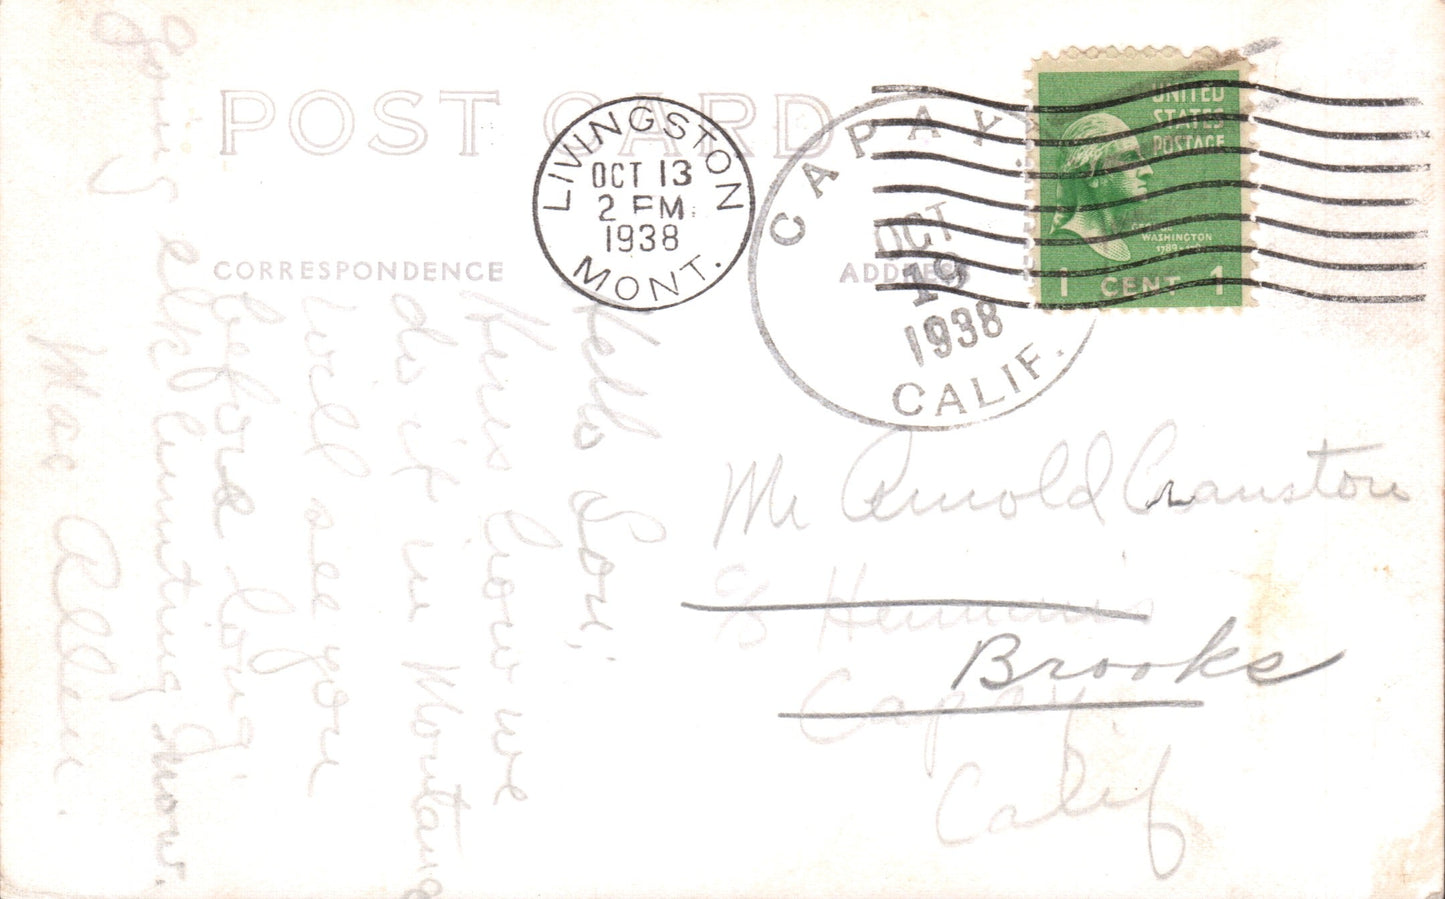 POST CARD
CORRESPONDENCE
ADDRESS
LIVINGSTON
OCT 13
2 PM
1938
MONT.
CAPAY
OCT
19
1938
CALIF.
UNITED
STATES
POSTAGE
GEORGE
WASHINGTON
1789
1 CENT 1
Hello
Heres how we
do it in Montana
will see you
before long
going elk hunting now.
Mr Arnold Cranston
c/o
Brooks
Capay
Calif